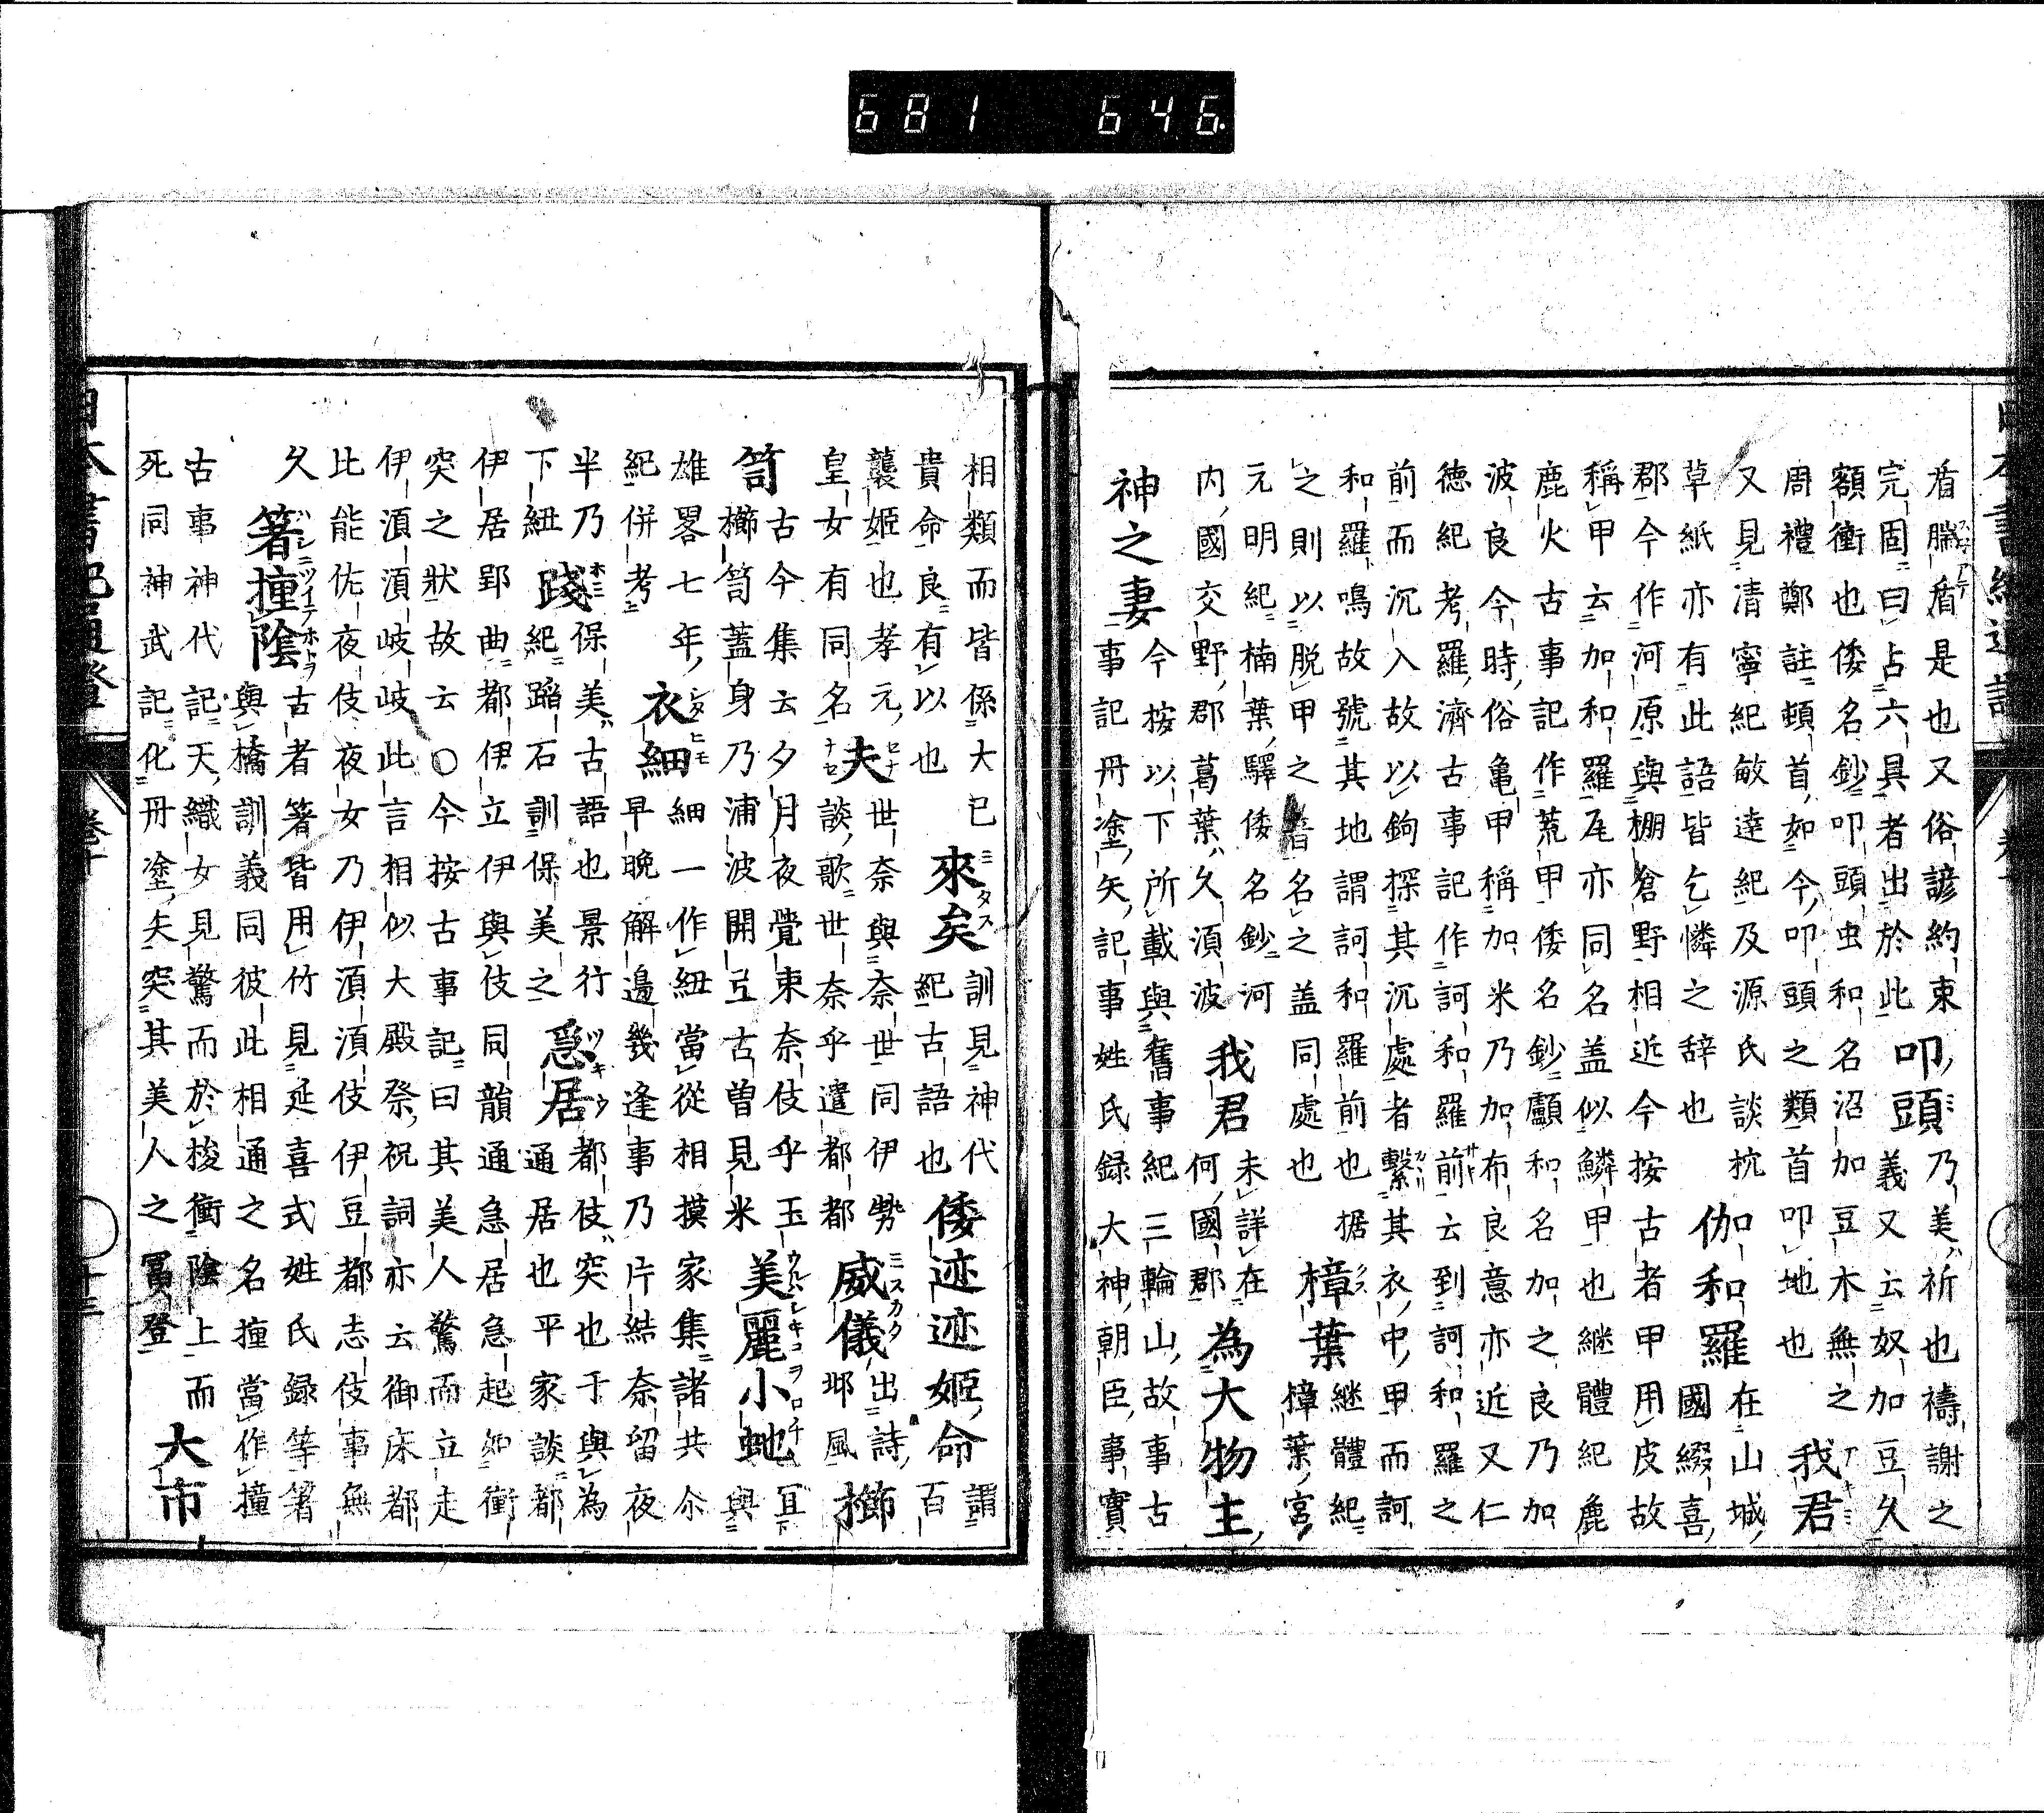 681 646
盾䐉盾是也又俗諺約束
完固曰占六具者出於此
叩頭乃美祈也禱謝之
義又云奴加豆久
額衝也倭名鈔叩頭虫和名沼加豆木無之
周禮鄭註頓首如今叩頭之類首叩地也
我君
又見清寧紀敏達紀及源氏談抗
草紙亦有此語皆乞憐之辞也
伽和羅
在山城
國綴喜
郡今作河原與棚倉野相近今按古者甲用皮故
稱甲云加和羅尾亦同名盖似鱗甲也継體紀鹿
鹿火古事記作荒甲倭名鈔顱和名加之良乃加
波良今時俗亀甲稱加米乃加布良意亦近又仁
德紀考羅濟古事記作訶和羅前云到訶和羅之
前而沉入故以鉤探其沉處者繫其衣中甲而訶
和羅鳴故號其地謂訶和羅前也据継體紀
之則以脱甲之名之盖同處也
樟葉
樟葉宮
元明紀楠葉驛倭名鈔河
内國交野郡葛葉久湏波
我君
未詳在
何國郡
為大物主
神之妻
今按以下所載與舊事紀三輪山故事古
事記丹塗矢記事姓氏録大神朝臣事實
相類而皆係大已
貴命良有以也
來矣
訓見神代
紀古語也
倭迹迹姬命
謂
百
襲姬也孝元
皇女有同名
夫
世奈與奈世同伊勢
談歌世奈乎遣都都
威儀
出詩
邶風
櫛
笥
古今集云夕月夜覺束奈伎乎玉
櫛笥蓋身乃浦波開弖古曽見米
美麗小虵
與
雄畧七年
紀併考
衣細
細一作紐當從相摸家集諸共尒
早晩解邊幾逢事乃片結奈留夜
半乃
下紐
踐
保美古語也景行
紀蹈石訓保美之
急居
都伎突也于與為
通居也平家談都
伊居郢曲都伊立伊與伎同韻通急居急起如衝
突之狀故云〇今按古事記曰其美人驚而立走
伊湏湏岐岐此言相似大殿祭祝詞亦云御床都
比能佐夜伎夜女乃伊湏湏伎伊豆都志伎事無
久
箸撞陰
古者箸皆用竹見延喜式姓氏録等箸
與橋訓義同彼此相通之名撞當作撞
古事神代記天織女見驚而於梭衝陰上而
死同神武記化丹塗矢突其美人之冨登
大市